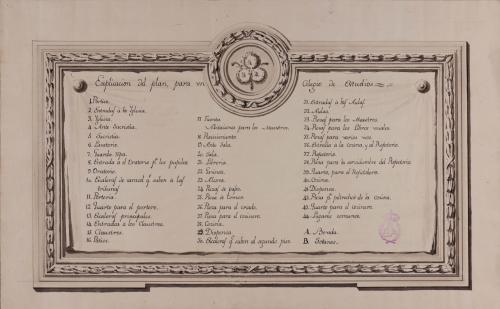 Explicacion del plan, para un Colegio de Estudios
1. Portico.
2. Entradas à la Yglesia.
3. Yglesia.
4. Ante Sacristia.
5. Sacristia.
6. Lavatorio.
7. Guarda ropa.
8. Entrada à el Oratorio pª los pupilos
9. Oratorio.
10. Escaleras de caracol qª suben à las
tribunas
11. Porteria.
12. Quarto para el portero.
13. Escaleras principales.
14. Entradas à los Claustros.
15. Claustros.
16. Patios.
17. Fuente
Abitaciones para los Maestros.
18. Recivimiento
19. Ante Sala.
20. Sala.
21. Libreria.
22. Gavinete.
23. Alcova.
24. Pieza de paso.
25. Pieza de comer.
26. Pieza para el criado.
27. Pieza para el cocinero.
28. Cocina.
29. Dispensa
30. Escaleras qª suben al segundo piso
31. Entradas à las Aulas.
32. Aulas.
33. Piezas para los Maestros.
34. Piezas para los Libros
35. Piezas para varios usos.
36. Entrada à la cocina, y al Refectorio.
37. Refectorio.
38. Pieza para la servidumbre del Refectorio
39. Quarto, para el Refitolero.
40. Cocina.
41. Dispensa.
42. Pieza pª
de la cocina.
43. Quarto para el cocinero.
44. Lugares comunes.
A. Boveda.
B. Sotanos.